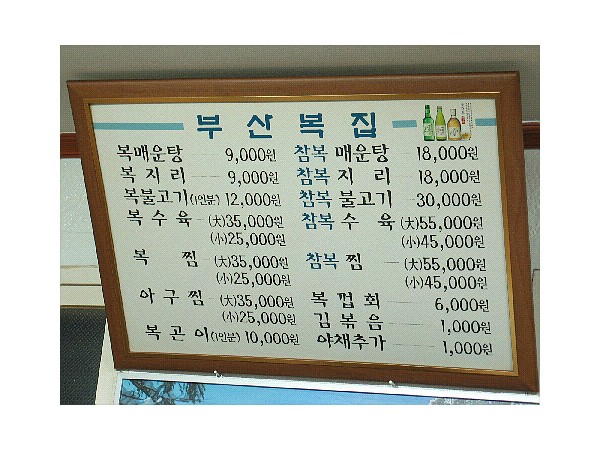 부산복집
복매운탕 9,000원 참복 매운탕 18,000원
복지리 9,000원 참복 지리 18,000원
복불고기(1인분) 12,000원 참복 불고기 30,000원
복수육 (大)35,000원 참복 수육 (大)55,000원
(小)25,000원 (小)45,000원
복찜 (大)35,000원 참복 찜 (大)55,000원
(小)25,000원 (小)45,000원
아구찜 (大)35,000원 복껍회 6,000원
(小)25,000원 김볶음 1,000원
복곤이(1인분) 10,000원 야채추가 1,000원